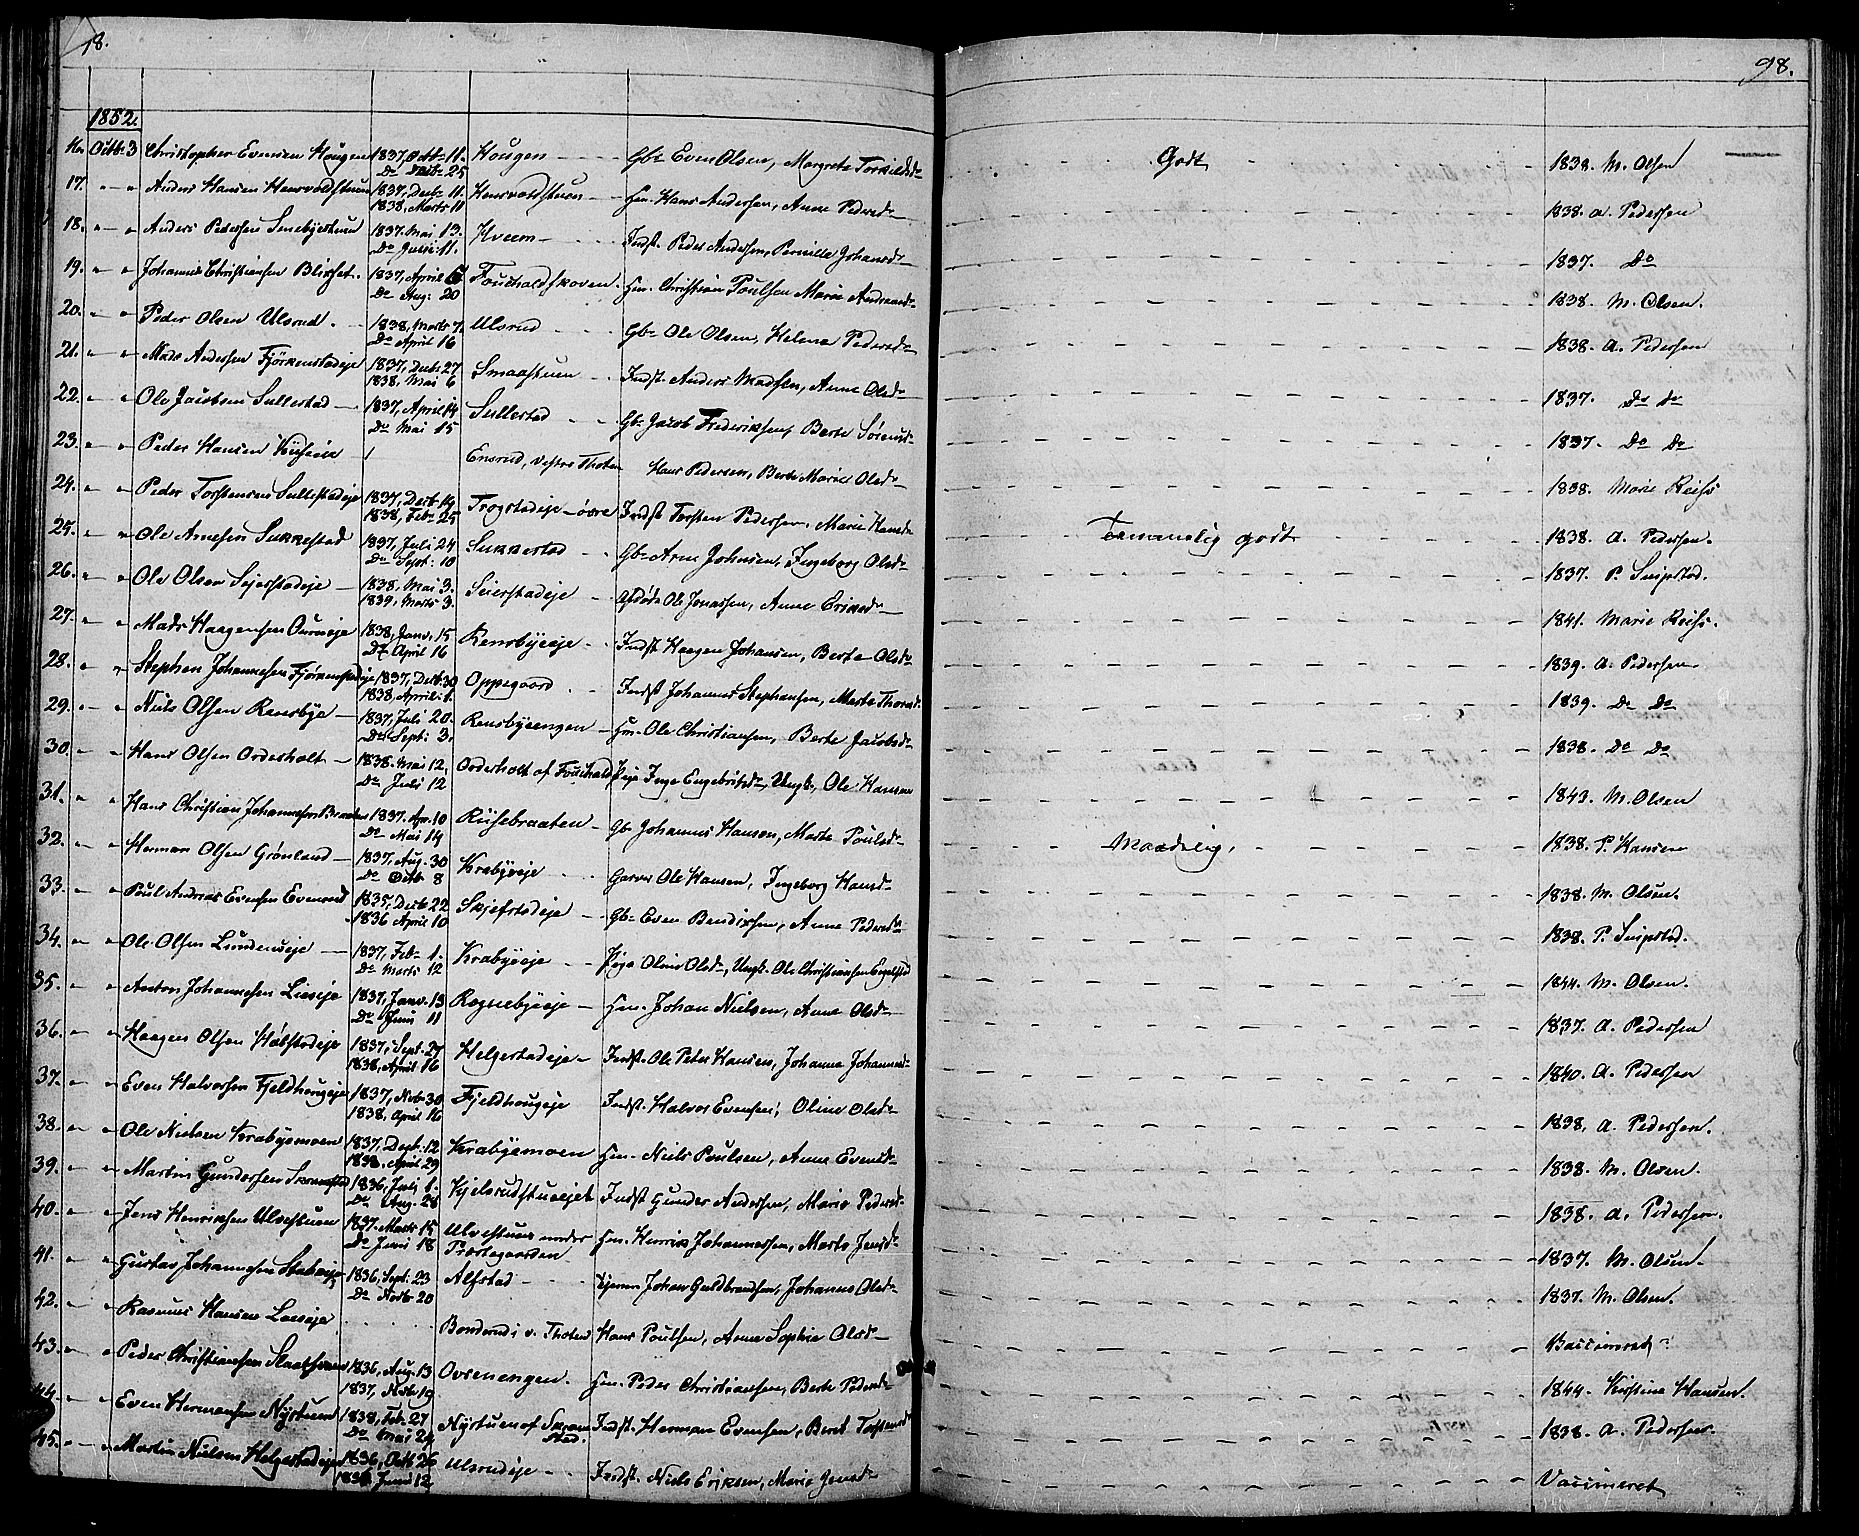 18.
98.
1852.
16. Octb. 3 Christopher Evensen Hougen 1837, Octb. 11. Hougen Gbr. Even Olsen, Margrete Torkildsd. Godt 1838. M. Olsen
Do Decbr. 25
17. " " Anders Hansen Hensvoldstuen 1837, Decbr. 11. Hensvoldstuen Hm. Hans Andersen, Anne Pedersd. 1838. A. Pedersen
1838, Marts 11
18. " " Anders Pedersen 1837. Mai 13. Kveem Indst. Peder Andersen, Pernille Johansd. 1837. Do
Do Juni 11.
19. " " Johannes Christiansen Blixset. 1837, April Fouchaldskoven. Hm. Christian Poulsen Marie Andreasd. 1838. M. Olsen.
Do Aug. 20
20. " " Peder Olsen Ulsrud. 1838, Marts 7. Ulsrud Gbr. Ole Olsen, Helene Pedersd. 1838. A. Pedersen
Do April 16
21. " " Mads Andersen Fjörkenstadeje 1837, Decb. 27 Smaastuen Indst. Anders Madsen, Anne Olsd. 1837. Do Do
1838. Mai 6
22. " " Ole Jacobsen Sullestad 1837, April 14 Sullestad Gbr. Jacob Frederiksen, Berte Sörensd. 1837. Do Do
Do Mai 15
23. " " Peder Hansen Ensrud, vestre Thoten Hans Pedersen, Berte Marie Olsd. 1838. Marie Reiss
24. " " Peder Torstensen Sullestadeje 1837, Decb. 19 Trogstadeje övre Indst Torsten Pedersen, Marie Hansd. 1838. A. Pedersen.
1838, Feb. 25
25. " " Ole Arnesen Sukkestad 1837, Juli 24 Sukkestad Gbr. Arne Johnsen, Ingeborg Olsd. Temmelig godt 1837. P. Snipstad.
Do Sept. 10
26. " " Ole Olsen Sejerstadeje 1838, Mai 3. Seierstadeje Afdöde Ole Jonassen, Anne Eriksd. 1841. Marie Reiss.
1839, Marts 3.
27. " " Mads Haagensen 1838, Janv. 15 Rensbyeeje Indst Haagen Johansen, Berte Olsd. 1839. A. Pedersen
Do April 16
28. " " Stephen Johannesen Fjörkenstadeje 1837, Decb. 30 Oppegaard Indst Johannes Stephansen, Marte Thorsd. 1839. Do Do
1838, April 1.
29. " " Niels Olsen Rensbye 1837, Juli 20. Rensbyeengen Hm. Ole Christiansen, Berte Jacobsd. 1838. Do Do
Do Sept. 3.
30. " " Hans Olsen Orderholt 1838. Mai 12. Orderholt af Fouchald Pige Inge Engebretsd., Ungk. Ole Hansen 1843. M. Olsen
Do Juli 12
31. " " Hans Christian Johannesen Braaten 1837. Apr. 10 Riisebraaten Gbr. Johannes Hansen, Marte Poulsd. Maadelig. 1838. P. Hansen
Do Mai 14
32. " " Herman Olsen Grönland 1837, Aug. 30 Krabyeeje Garver Ole Hansen, Ingeborg Hansd. 1838. M. Olsen.
Do Octb. 8
33. " " Poul Andreas Evensen Evensrud 1837, Decb. 22 Skjefstadeje Gbr. Even Bendixsen, Anne Pedersd. 1838. P. Snipstad.
1836 April 10
34. " " Ole Olsen Lundeneeje 1837, Feb. 1. Krabyeeje Pige Oline Olsd., Ungk. Ole Christiansen 1844. M. Olsen.
Do Marts 12
35. " " Anton Johannesen Lieseje 1837, Janv. 13 Rognebyeeje Hm. Johan Nielsen, Anne Olsd. 1837. A. Pedersen
Do Juni 11
36. " " Haagen Olsen Hölstadeje 1837, Sept. 27 Helgestadeje Indst. Ole Peter Hansen, Johanne Johannesd. 1840. A. Pedersen
1838, April 16
37. " " Even Halvorsen Fjeldhougeje 1837, Novb. 30 Fjeldhougeje Indst. Halvor Evensen, Oline Olsd. 1838, A. Pedersen.
1838. April 16
38. " " Ole Nielsen Krabyemoen 1837, Sept. 12 Krabyemoen Hm. Niels Poulsen, Anne Evensd. 1838. M. Olsen.
1838, April 29
39. " " Martin Gundersen Skramstad 1836, Juli 1. Kjelsrudstueeje Indst Gunder Andersen, Marie Pedersd. 1838. A. Pedersen.
Do Aug. 28
40. " " Jens Henriksen Ulvestuen 1837. Marts 15 Ulvestuen under Hm. Henrik Johannessen, Marte Jensd. 1837. M. Olsen.
Do Juni 18 Præstegaarden
41. " " Gustav Johannesen 1836, Sept. 23 Alfstad Johan Guldbrandsen, Johanne Olsd. 1837. M. Olsen.
Do Novb. 20
42. " " Rasmus Hansen v. Thoten Hans Poulsen, Anne Sophie Olsd. Vaccineret
43. " " Peder Christiansen 1836, Aug. 13 Ovrenengen. Hm. Peder Christiansen, Berte Pedersd. 1844. Kirstine Hansen.
1837, Novb. 19
44. " " Even Hermansen Nystuen 1838, Feb. 27 Nystuen af Skramstad. Indst. Herman Evensen, Beret Torstensd. 1838. A. Pedersen.
Do Mai 24
45. " " Martin Nielsen Helgestadeje 1836, Octb. 26 Ulsrudeje Indst. Niels Eriksen, Marie Jensd. Vaccineret
Juni 12